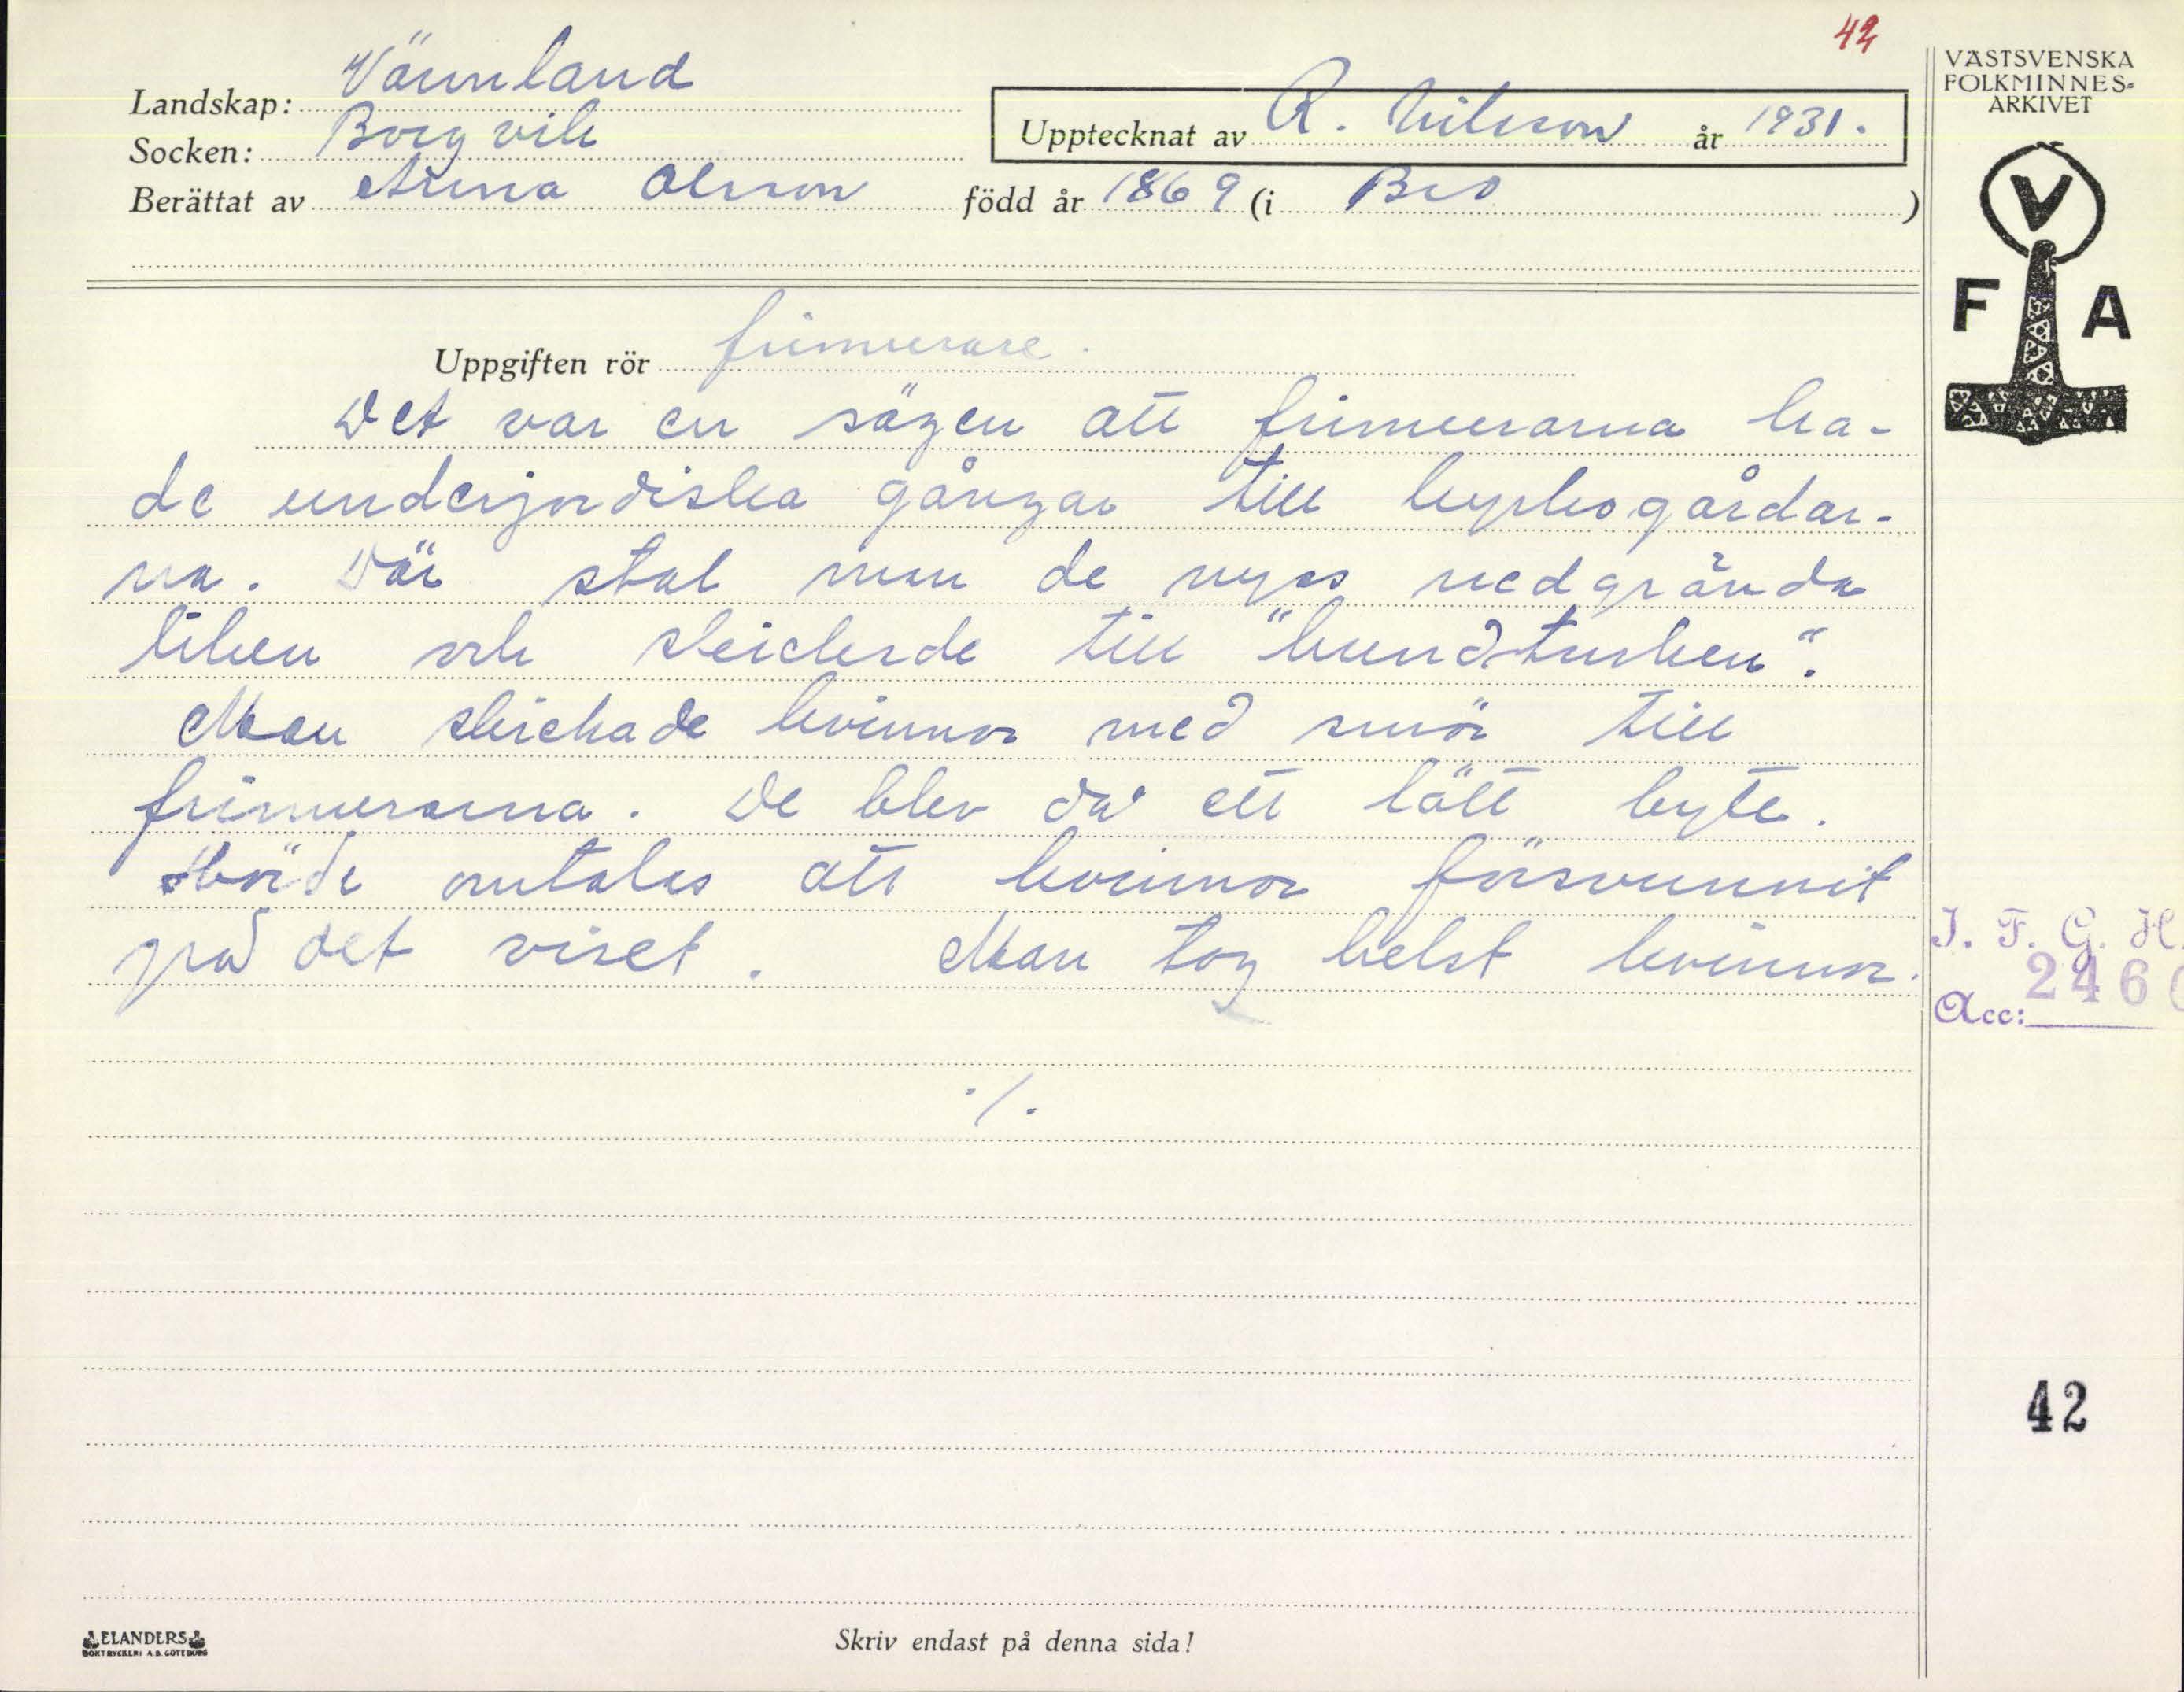 42
VÄSTSVENSKA
FOLKMINNES-
ARKIVET
Landskap: Värmland
Socken: Borgvik
Upptecknat av R. Nilsson år 1931.
Berättat av Anna Olsson född år 1869 (i Bro )
V
F A
Uppgiften rör frimurare.
Det var en sägen att frimurarna ha-
de underjordiska gångar till kyrkogårdar-
na. Där stal man de nyss nedgrävda
liken och skickade till "hundturken".
Man skickade kvinnor med smör till
frimurarna. De blev då ett lätt byte.
Hörde omtalas att kvinnor försvunnit
på det viset. Man tog helst kvinnor.
I. F. G. H.
Acc: 2460
./.
42
ELANDERS
BOKTRYCKERI A.B. GÖTEBORG
Skriv endast på denna sida!